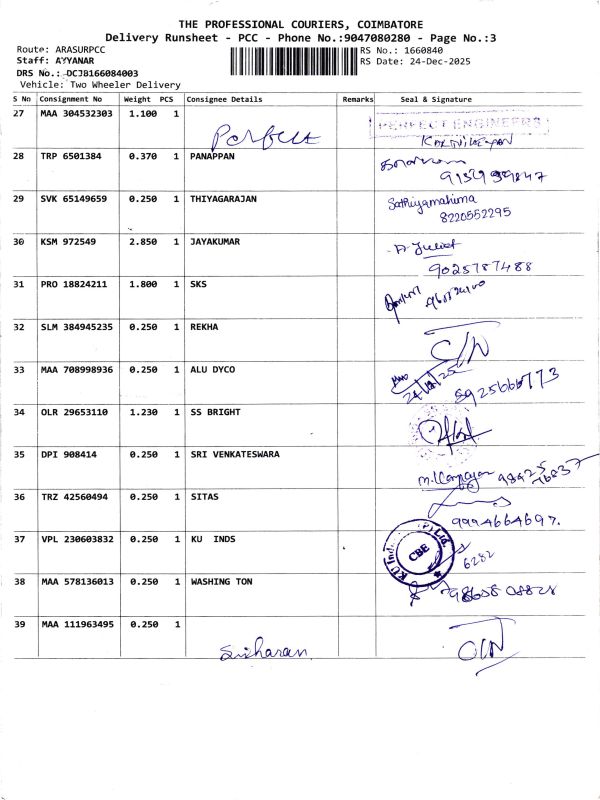 THE PROFESSIONAL COURIERS, COIMBATORE
Delivery Runsheet - PCC - Phone No.:9047080280 - Page No.:3
Route: ARASURPCC RS No.: 1660840
Staff: AYYANAR RS Date: 24-Dec-2025
DRS No.: DCJB166084003
Vehicle: Two Wheeler Delivery
S No Consignment No Weight PCS Consignee Details Remarks Seal & Signature
27 MAA 304532303 1.100 1 Perfect PERFECT ENGINEERS
28 TRP 6501384 0.370 1 PANAPPAN
29 SVK 65149659 0.250 1 THIYAGARAJAN Sathiyamahima
8220552295
30 KSM 972549 2.850 1 JAYAKUMAR A Juliet
9025787488
31 PRO 18824211 1.800 1 SKS
32 SLM 384945235 0.250 1 REKHA
33 MAA 708998936 0.250 1 ALU DYCO 24/12/25
34 OLR 29653110 1.230 1 SS BRIGHT
35 DPI 908414 0.250 1 SRI VENKATESWARA
36 TRZ 42560494 0.250 1 SITAS
9994664697.
37 VPL 230603832 0.250 1 KU INDS CBE
6282
38 MAA 578136013 0.250 1 WASHING TON
39 MAA 111963495 0.250 1